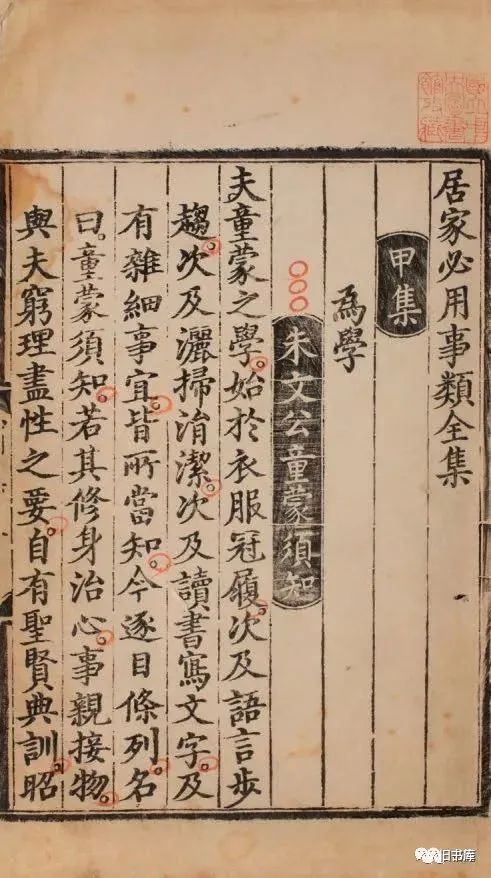 居家必用事類全集
甲集
為學
朱文公童蒙須知
夫童蒙之學始於衣服冠履次及語言步
趨次及灑掃涓潔次及讀書寫文字及
有雜細事宜皆所當知今逐目條列名
曰童蒙須知若其修身治心事親接物
與夫窮理盡性之要自有聖賢典訓昭
旧书库